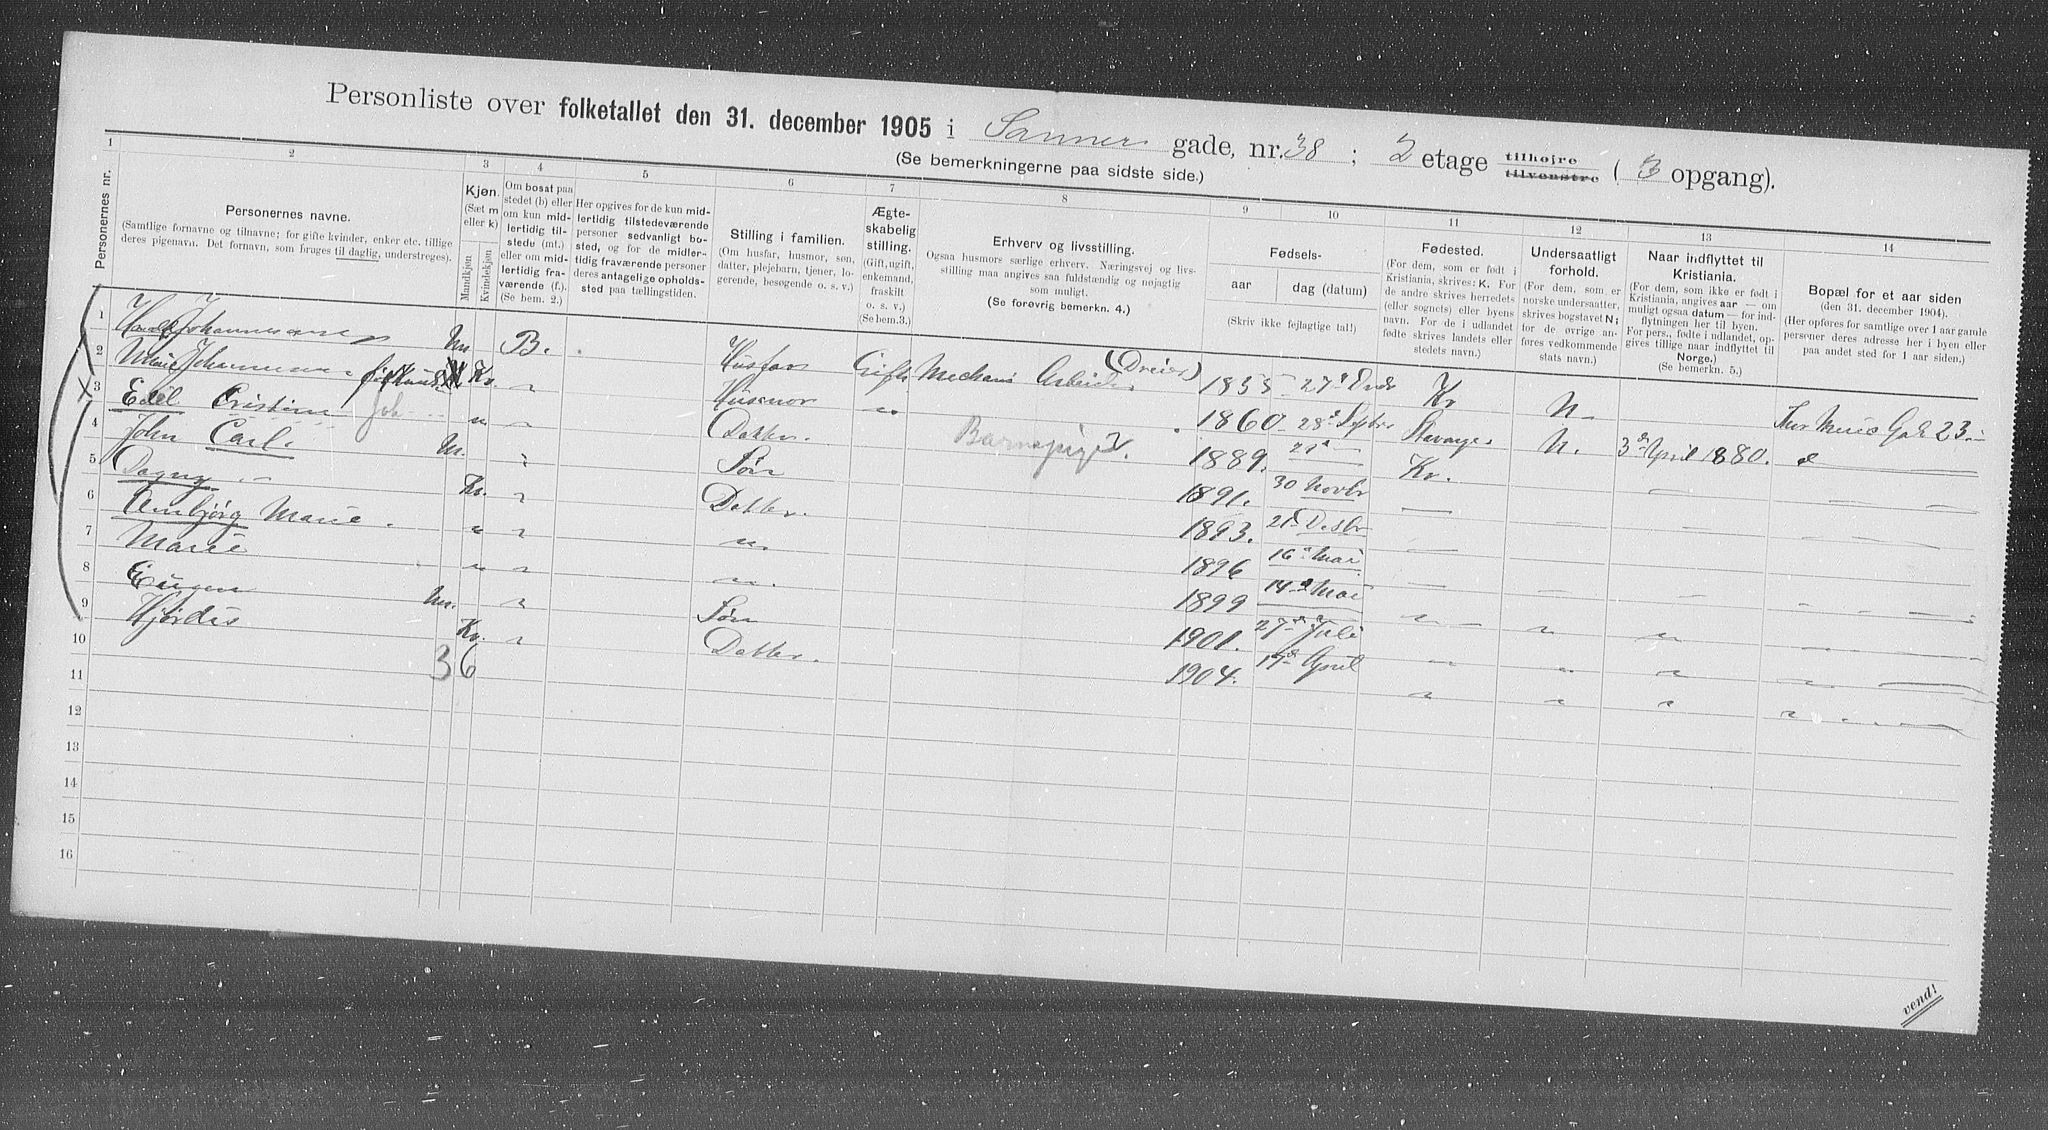 Personliste over folketallet den 31. december 1905 i Sanners gade, nr. 38 ; 2 etage tilhøjre tilvenstre ( 3 opgang).
(Se bemerkningerne paa sidste side.)
1 2 3 4 5 6 7 8 9 10 11 12 13 14
Personernes nr.
Personernes navne.
(Samtlige fornavne og tilnavne; for gifte kvinder, enker etc. tillige
deres pigenavn. Det fornavn, som bruges til daglig, understreges).
Kjøn.
(Sæt m
eller k)
Mandkjøn
Kvindekjøn
Om bosat paa
stedet (b) eller
om kun mid-
lertidig til-
stede (mt.)
eller om mid-
lertidig fra-
værende (f.).
(Se bem. 2.)
Her opgives for de kun mid-
lertidig tilstedeværende
personer sedvanligt bo-
sted, og for de midler-
tidig fraværende personer
deres antagelige opholds-
sted paa tællingstiden.
Stilling i familien.
(Om husfar, husmor, søn,
datter, plejebarn, tjener, lo-
gerende, besøgende o. s. v.)
Ægte-
skabelig
stilling.
(Gift, ugift,
enkemand,
fraskilt
o. s. v.)
(Se bem.3.)
Erhverv og livsstilling.
Ogsaa husmors særlige erhverv. Næringsvej og livs-
stilling maa angives saa fuldstændig og nøjagtig
som muligt.
(Se forøvrig bemerkn. 4.)
Fødsels-
aar dag (datum)
(Skriv ikke fejlagtige tal!)
Fødested.
(For dem, som er født i
Kristiania, skrives: K. For
de andre skrives herredets
(eller sognets) eller byens
navn. For de i udlandet
fødte skrives landets eller
stedets navn.)
Undersaatligt
forhold.
(For dem, som er
norske undersaatter,
skrives bogstavet N;
for de øvrige an-
føres vedkommende
stats navn.)
Naar indflyttet til
Kristiania.
(For dem, som ikke er født i
Kristiania, angives aar — om
muligt ogsaa datum — for ind-
flytningen her til byen.
For pers., fødte i udlandet, op-
gives tillige naar indflyttet til
Norge.)
(Se bemerkn. 5.)
Bopæl for et aar siden
(den 31. december 1904).
(Her opføres for samtlige over 1 aar gamle
personer deres adresse her i byen eller
paa andet sted for 1 aar siden.)
1 Johannesen m B. Husfar Gift Mechani Arbeider (Dreier) 1855 27 Kr N. Gade 23
2 Marie Johannesen Kv. " Husmor " 1860 28 Septbr Stavanger N. 3 April 1880. "
3 Edel Cristine Joh " " Datter. Barnepige 1889. 21 Kr.
4 John Carl. M. " Søn 1891. 30 Novbr
5 Dagny Kv. " Datter. 1893. 21 Desbr
6 Ambjørg Marie " " " 1896 16 Mai
7 Marie " " " 1899 14 Mai " " "
8 Eugen m. " Søn 1901. 27 Juli " " "
9 Hjørdis Kv. " Datter. 1904. 17 April " " " "
10 3 6
11
12
13
14
15
16
vend!